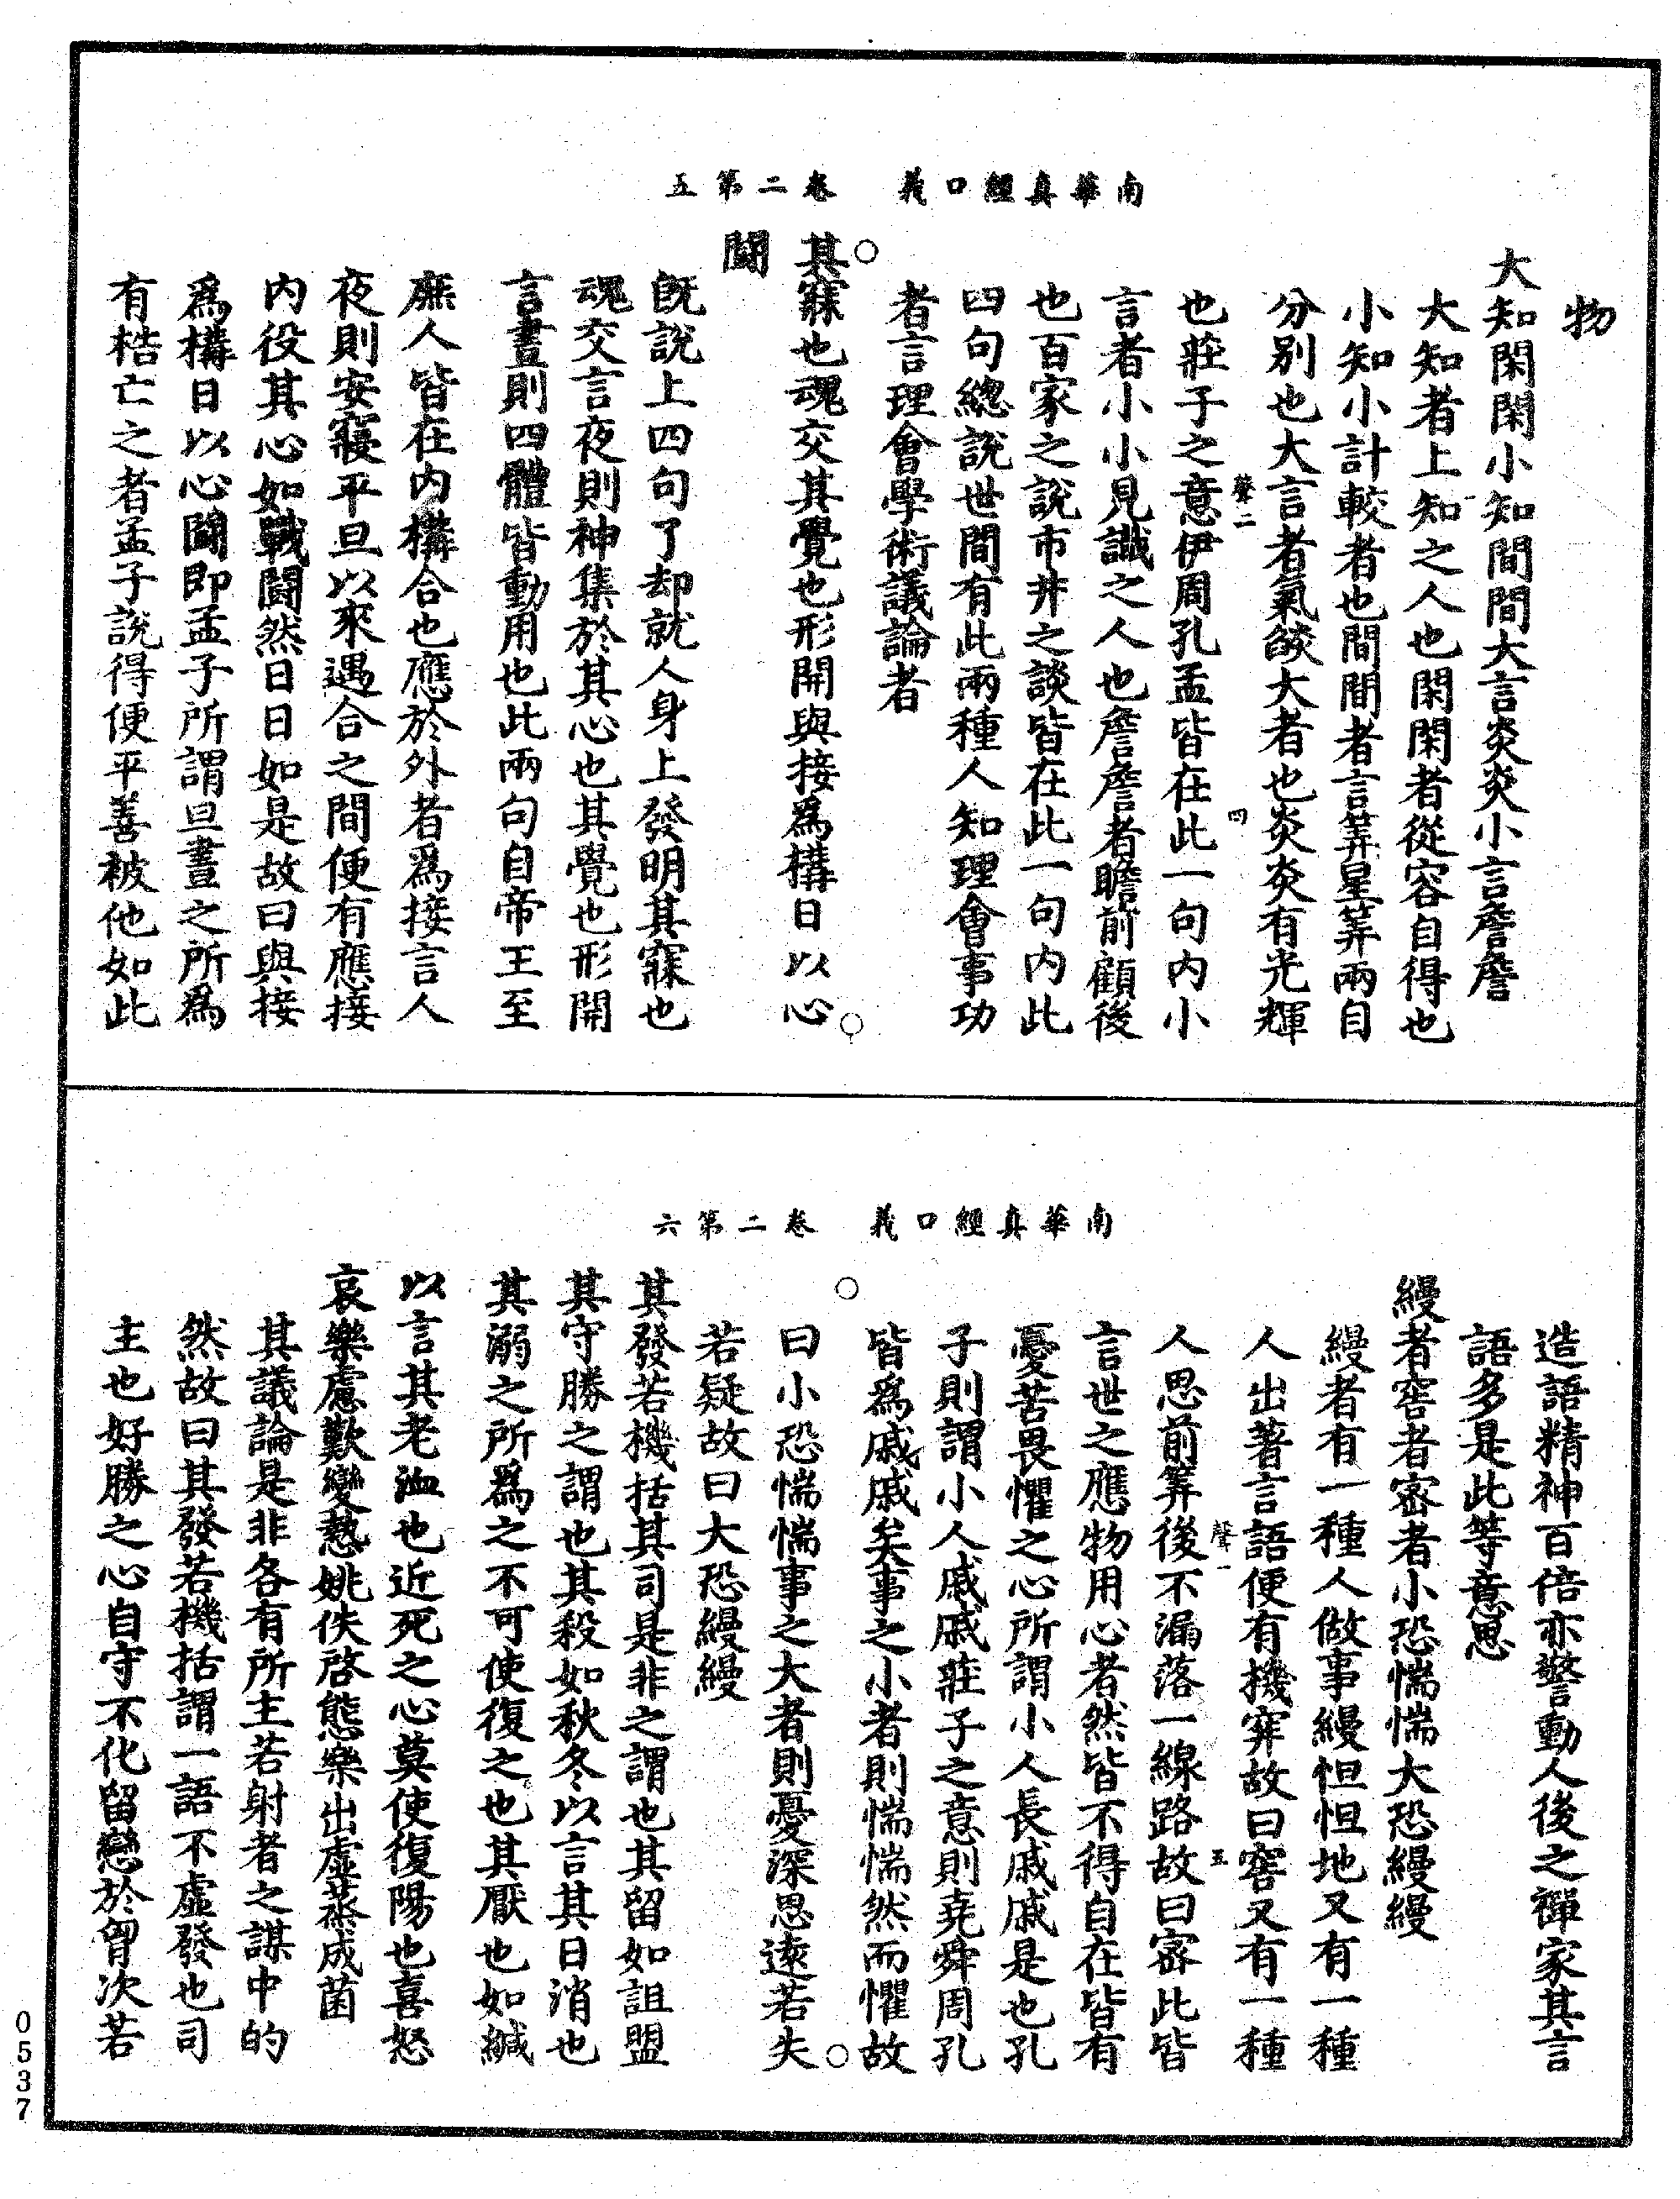 南華真經口義　卷二第五
物
大知閑閑小知間間大言炎炎小言詹詹
大知者上知之人也閑閑者從容自得也
小知小計較者也間間者言筭星筭兩自
分别也大言者氣燄大者也炎炎有光輝
聲二　四
也莊子之意伊周孔孟皆在此一句内小
言者小小見識之人也詹詹者瞻前顧後
也百家之說市井之談皆在此一句内此
四句總說世間有此兩種人知理會事功
者言理會學術議論者
○其寐也魂交其覺也形開與接爲構日以心○
鬭
旣說上四句了却就人身上發明其寐也
魂交言夜則神集於其心也其覺也形開
言晝則四體皆動用也此兩句自帝王至
庶人皆在内構合也應於外者爲接言人
夜則安寢平旦以來遇合之間便有應接
内役其心如戰鬭然日日如是故曰與接
爲構日以心鬭即孟子所謂旦晝之所爲
有梏亡之者孟子說得便平善被他如此
南華真經口義　卷二第六
造語精神百倍亦警動人後之禪家其言
語多是此等意思
縵者窖者密者小恐惴惴大恐縵縵
縵者有一種人做事縵怛怛地又有一種
人出著言語便有機穽故曰窖又有一種
聲一　五
人思前筭後不漏落一線路故曰密此皆
言世之應物用心者然皆不得自在皆有
憂苦畏懼之心所謂小人長戚戚是也孔
子則謂小人戚戚莊子之意則堯舜周孔
皆爲戚戚矣事之小者則惴惴然而懼故
○曰小恐惴惴事之大者則憂深思遠若失○
若疑故曰大恐縵縵
其發若機括其司是非之謂也其留如詛盟
其守勝之謂也其殺如秋冬以言其日消也
其溺之所爲之不可使復之也其厭也如緘
以言其老洫也近死之心莫使復陽也喜怒
哀樂慮歎變慹姚佚啓態樂出虛蒸成菌
其議論是非各有所主若射者之謀中的
然故曰其發若機括謂一語不虛發也司
主也好勝之心自守不化留戀於胷次若
0537